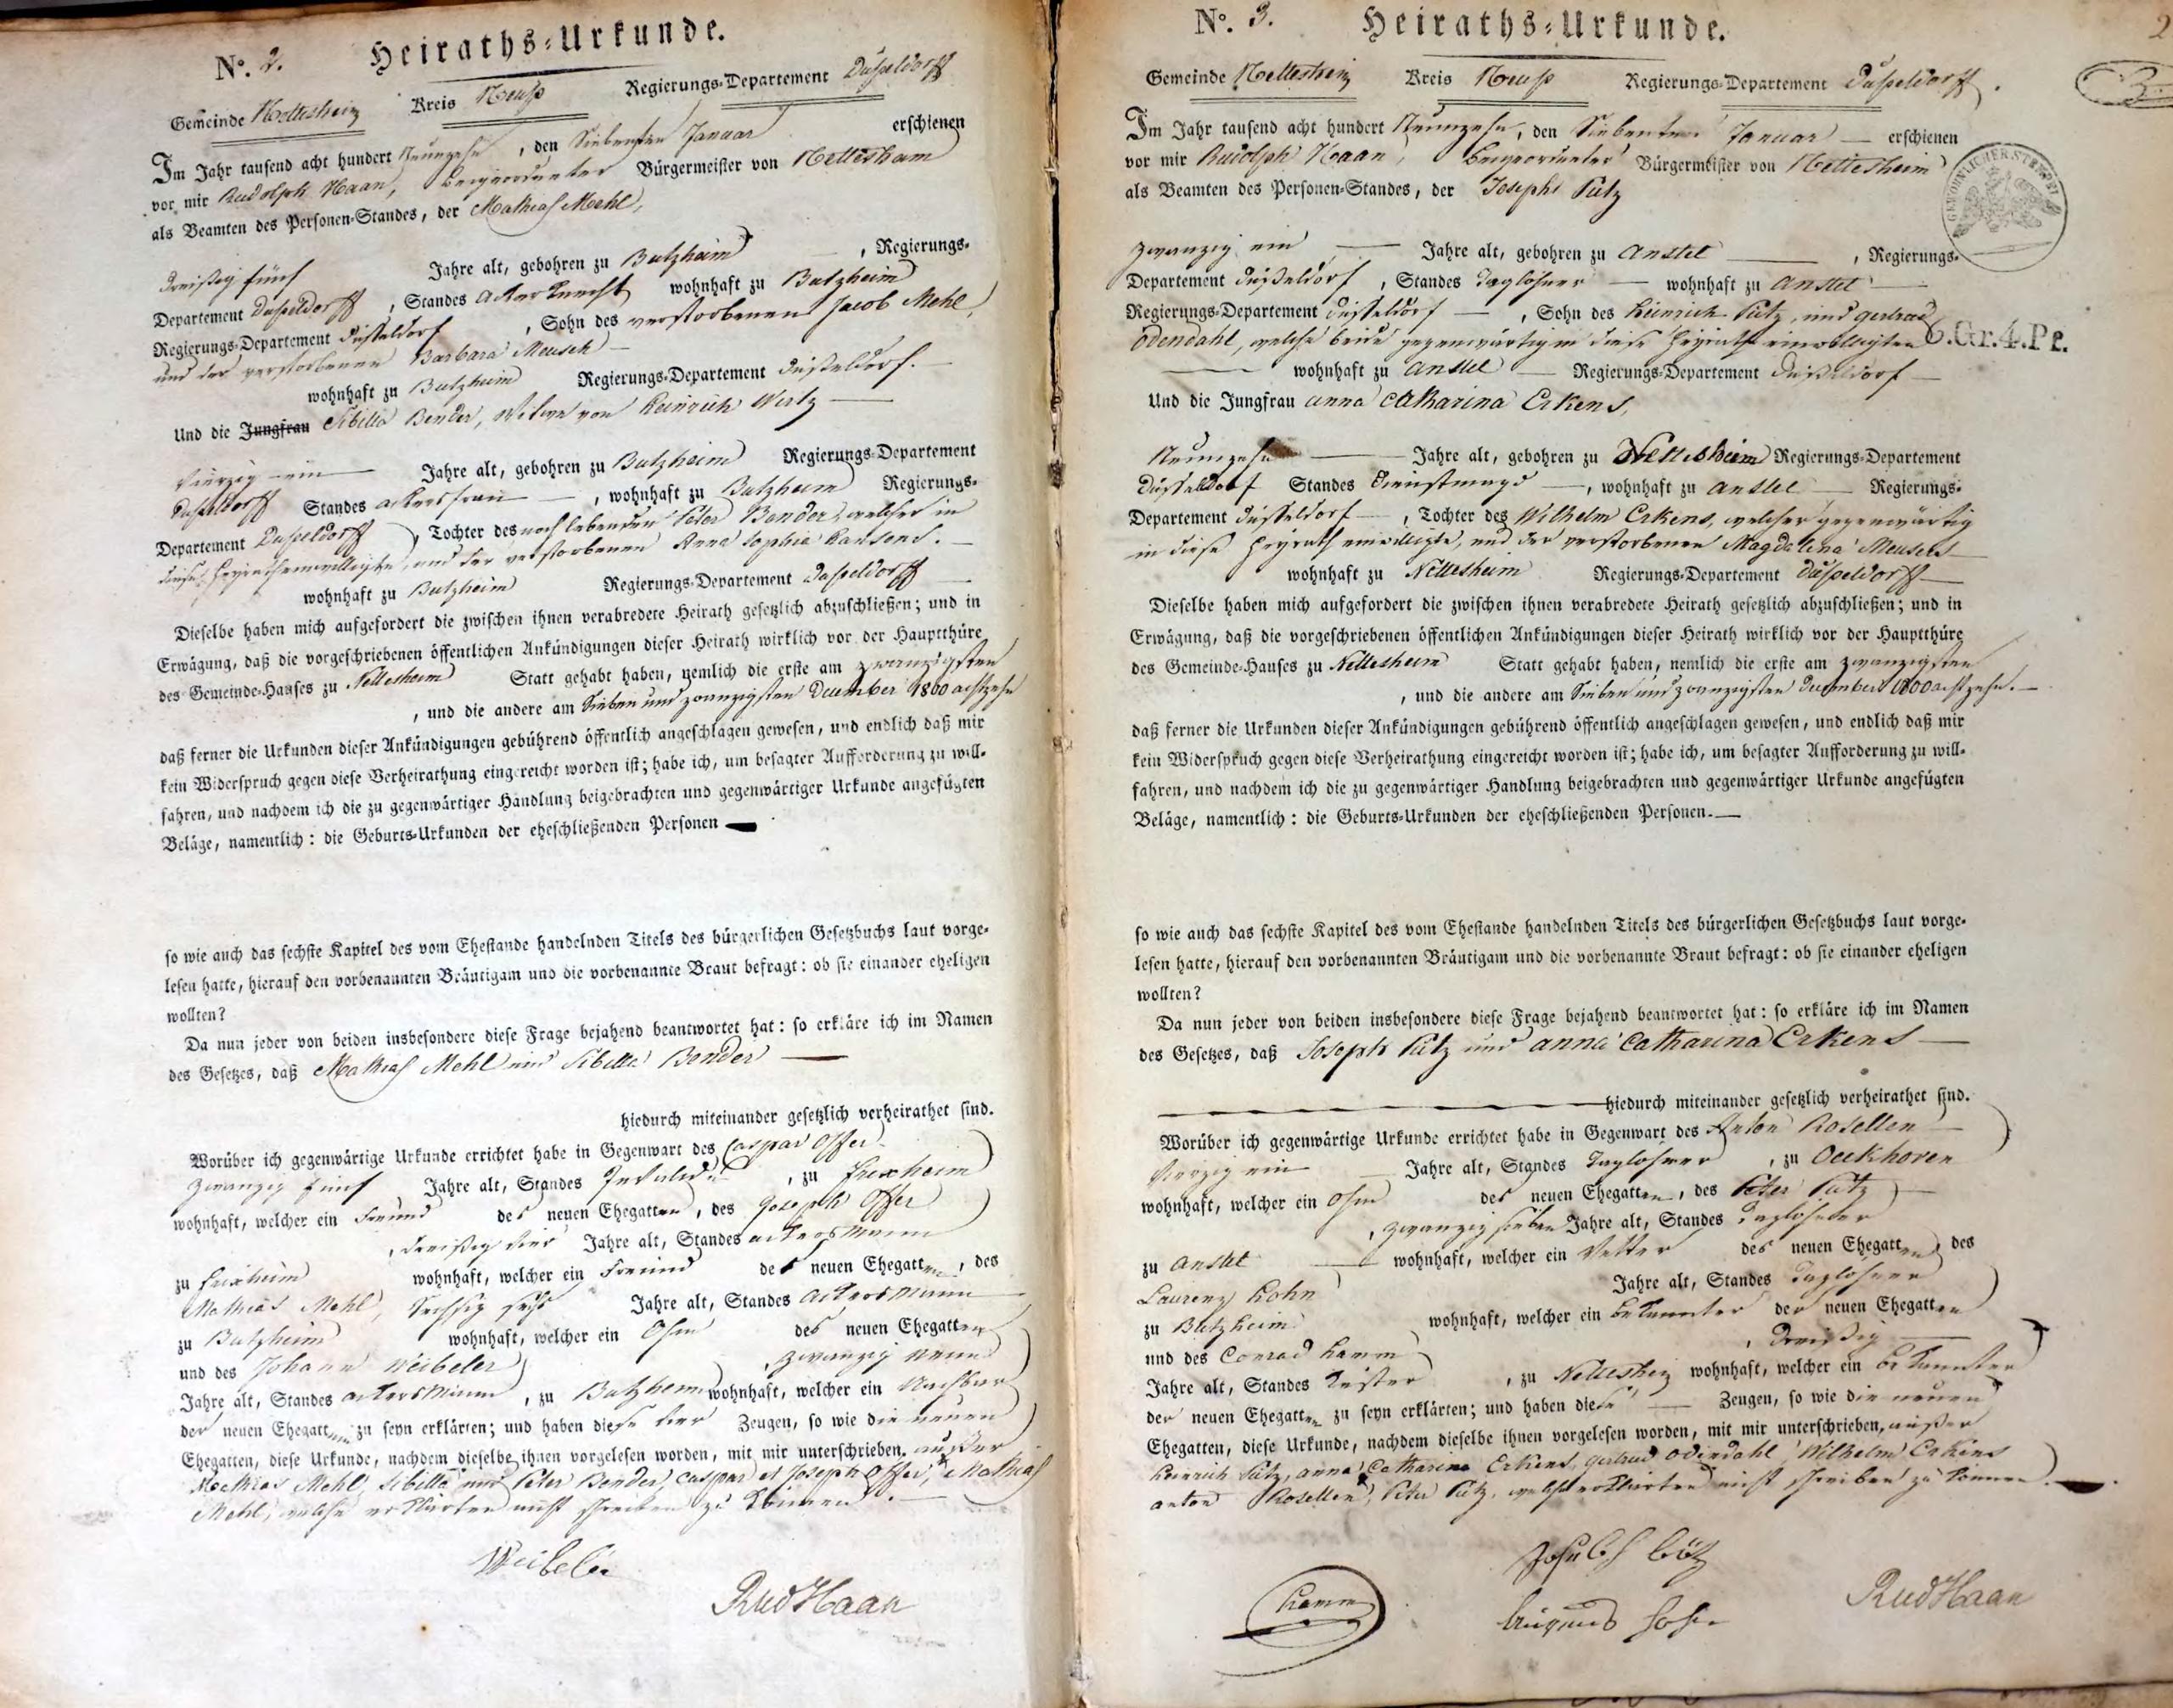 No. 2. Heiraths-Urkunde.
Gemeinde Nettesheim Kreis Neuß Regierungs-Departement Dußeldorff
Im Jahr tausend acht hundert Neunzehn, den Siebenten Januar erschienen
vor mir Rudolph Haan, beigeordneter Bürgermeister von Nettesheim
als Beamten des Personen-Standes, der Mathias Mehl,
dreißig fünf Jahre alt, gebohren zu Butzheim, Regierungs-
Departement Dußeldorff, Standes Ackerknecht wohnhaft zu Butzheim
Regierungs-Departement Düsseldorf, Sohn des verstorbenen Jacob Mehl,
und der verstorbenen Barbara Meusch
wohnhaft zu Butzheim Regierungs-Departement Düßeldorf.
Und die Jungfrau Sibilla Bender, Witwe von Heinrich Wirtz
Vierzig ein Jahre alt, gebohren zu Butzheim Regierungs-Departement
Dußeldorff Standes Ackersfrau, wohnhaft zu Butzheim Regierungs-
Departement Dußeldorff, Tochter des noch lebenden Peter Bender, welcher in
diese Heyrath einwilligte, und der verstorbenen Anna Sophia Hansens.
wohnhaft zu Butzheim Regierungs-Departement Dußeldorff
Dieselbe haben mich aufgefordert die zwischen ihnen verabredete Heirath gesetzlich abzuschließen; und in
Erwägung, daß die vorgeschriebenen öffentlichen Ankündigungen dieser Heirath wirklich vor der Hauptthüre
des Gemeinde-Hauses zu Nettesheim Statt gehabt haben, nemlich die erste am zwanzigsten
, und die andere am Sieben und zwanzigsten December 1800 achtzehn
daß ferner die Urkunden dieser Ankündigungen gebührend öffentlich angeschlagen gewesen, und endlich daß mir
kein Widerspruch gegen diese Verheirathung eingereicht worden ist; habe ich, um besagter Aufforderung zu will-
fahren, und nachdem ich die zu gegenwärtiger Handlung beigebrachten und gegenwärtiger Urkunde angefügten
Beläge, namentlich: die Geburts-Urkunden der eheschließenden Personen
so wie auch das sechste Kapitel des vom Ehestande handelnden Titels des bürgerlichen Gesetzbuchs laut vorge-
lesen hatte, hierauf den vorbenannten Bräutigam und die vorbenannte Braut befragt: ob sie einander eheligen
wollten?
Da nun jeder von beiden insbesondere diese Frage bejahend beantwortet hat: so erkläre ich im Namen
des Gesetzes, daß Mathias Mehl und Sibilla Bender
hiedurch miteinander gesetzlich verheirathet sind.
Worüber ich gegenwärtige Urkunde errichtet habe in Gegenwart des Caspar Offer
zwanzig fünf Jahre alt, Standes Invalide, zu Frixheim
wohnhaft, welcher ein Freund der neuen Ehegatten, des Joseph Offer
, dreißig vier Jahre alt, Standes Ackersmann
zu Frixheim wohnhaft, welcher ein Freund der neuen Ehegatten, des
Mathias Mehl, Sechzig sechs Jahre alt, Standes Ackersmann
zu Butzheim wohnhaft, welcher ein Ohm des neuen Ehegatten
und des Johann Weibeler, zwanzig neun
Jahre alt, Standes Ackersmann, zu Butzheim wohnhaft, welcher ein Nachbar
der neuen Ehegatten zu seyn erklärten; und haben diese vier Zeugen, so wie die neuen
Ehegatten, diese Urkunde, nachdem dieselbe ihnen vorgelesen worden, mit mir unterschrieben, außer
Mathias Mehl, Sibilla und Peter Bender, Caspar et Joseph Offer, Mathias
Mehl, welche erklärten nicht schreiben zu können.
Weibeler
Rud Haan
No. 3. Heiraths-Urkunde.
2
Gemeinde Nettesheim Kreis Neuß Regierungs-Departement Dußeldorff.
Im Jahr tausend acht hundert Neunzehn, den Siebenten Januar erschienen
vor mir Rudolph Haan, beigeordneter Bürgermeister von Nettesheim
als Beamten des Personen-Standes, der Joseph Pütz
zwanzig ein Jahre alt, gebohren zu Anstel, Regierungs-
Departement Düsseldorf, Standes Taglöhner wohnhaft zu Anstel
Regierungs-Departement Düsseldorf, Sohn des Heinrich Pütz, und Gertrud
Odendahl, welche beide gegenwärtig in diese Heyrath einwilligten
6.Gr.4.Pe.
wohnhaft zu Anstel Regierungs-Departement Düßeldorf
Und die Jungfrau Anna Catharina Erkens,
Neunzehn Jahre alt, gebohren zu Nettesheim Regierungs-Departement
Düsseldorf Standes Dienstmagd, wohnhaft zu Anstel Regierungs-
Departement Düsseldorf, Tochter des Wilhelm Erkens, welcher gegenwärtig
in diese Heyrath einwilligte, und der verstorbenen Magdalena Meusch
wohnhaft zu Nettesheim Regierungs-Departement Dußeldorff
Dieselbe haben mich aufgefordert die zwischen ihnen verabredete Heirath gesetzlich abzuschließen; und in
Erwägung, daß die vorgeschriebenen öffentlichen Ankündigungen dieser Heirath wirklich vor der Hauptthüre
des Gemeinde-Hauses zu Nettesheim Statt gehabt haben, nemlich die erste am zwanzigsten
, und die andere am Sieben und zwanzigsten December 1800 achtzehn.
daß ferner die Urkunden dieser Ankündigungen gebührend öffentlich angeschlagen gewesen, und endlich daß mir
kein Widerspruch gegen diese Verheirathung eingereicht worden ist; habe ich, um besagter Aufforderung zu will-
fahren, und nachdem ich die zu gegenwärtiger Handlung beigebrachten und gegenwärtiger Urkunde angefügten
Beläge, namentlich: die Geburts-Urkunden der eheschließenden Personen.
so wie auch das sechste Kapitel des vom Ehestande handelnden Titels des bürgerlichen Gesetzbuchs laut vorge-
lesen hatte, hierauf den vorbenannten Bräutigam und die vorbenannte Braut befragt: ob sie einander eheligen
wollten?
Da nun jeder von beiden insbesondere diese Frage bejahend beantwortet hat: so erkläre ich im Namen
des Gesetzes, daß Joseph Pütz und Anna Catharina Erkens
hiedurch miteinander gesetzlich verheirathet sind.
Worüber ich gegenwärtige Urkunde errichtet habe in Gegenwart des Anton Rosellen
Vierzig ein Jahre alt, Standes Taglöhner, zu Oeckhoven
wohnhaft, welcher ein Ohm der neuen Ehegatten, des Peter Pütz
, zwanzig sieben Jahre alt, Standes Taglöhner
zu Anstel wohnhaft, welcher ein Vetter der neuen Ehegatten, des
Laurenz Hohn Jahre alt, Standes Taglöhner
zu Butzheim wohnhaft, welcher ein bekannter der neuen Ehegatten
und des Conrad Hamm, dreißig
Jahre alt, Standes Küster, zu Nettesheim wohnhaft, welcher ein bekannter
der neuen Ehegatten zu seyn erklärten; und haben diese Zeugen, so wie die neuen
Ehegatten, diese Urkunde, nachdem dieselbe ihnen vorgelesen worden, mit mir unterschrieben, außer
Heinrich Pütz, Anna Catharina Erkens, Gertrud Odendahl, Wilhelm Erkens
Anton Rosellen, Peter Pütz, welche erklärten nicht schreiben zu können.
Joseph Pütz
Hamm
Rud Haan